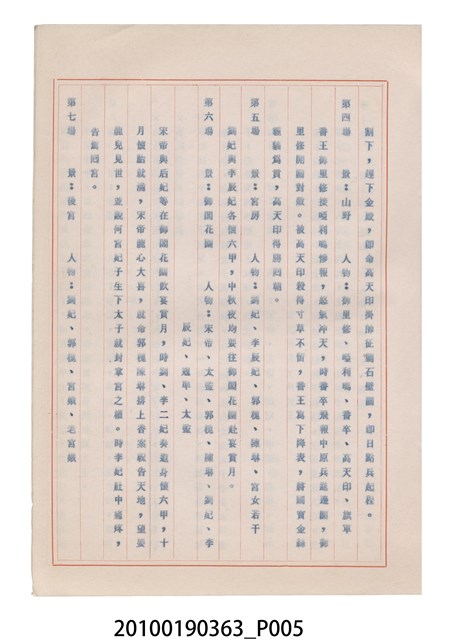 制下，趕下金殿，即命高天印掛帥征剿石壁關，即日點兵起程。
第四場　景：山野　人物：御里修、啞利嗚、番卒、高天印、旗軍
番王御里修接啞利嗚慘報，怒氣冲天，時番卒飛報中原兵亂邊關，御
里修開關對敵。被高天印殺得寸草不留，番王寫下降表，將國寶金絲
貓為貢，高天印得勝回朝。
第五場　景：宮房　人物：劉妃、李辰妃、郭槐、陳琳、宮女若干
劉妃與李辰妃各懷六甲，中秋夜均要往御園花園赴宴賞月。
第六場　景：御園花園　人物：宋帝、太監、郭槐、陳琳、劉妃、李
辰妃、寇準、太監
宋帝與后妃等在御園花園飲宴賞月，時劉、李二妃奏過身懷六甲，十
月懷胎就滿，宋帝龍心大喜，就命郭槐陳琳排上香案祝告天地，望要
龍兒見世，並說何宮妃子生下太子就封掌宮之權。時李妃肚中疼痛，
告駕回宮。
第七場　景：後宮　人物：劉妃、郭槐、宮娥、老宮娥
20100190363_P005